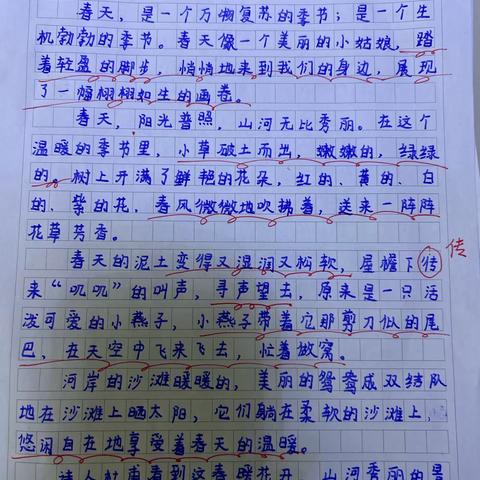 春天，是一个万物复苏的季节；是一个生
机勃勃的季节。春天像一个美丽的小姑娘，踏
着轻盈的脚步，悄悄地来到我们的身边，展现
了一幅栩栩如生的画卷。
春天，阳光普照，山河无比秀丽。在这个
温暖的季节里，小草破土而出，嫩嫩的，绿绿
的。树上开满了鲜艳的花朵，红的、黄的、白
的、紫的花，春风微微地吹拂着，送来一阵阵
花草芳香。
春天的泥土变得又湿润又松软，屋檐下传
传
来“叽叽”的叫声，寻声望去，原来是一只活
泼可爱的小燕子，小燕子带着它那剪刀似的尾
巴，在天空中飞来飞去，忙着做窝。
河岸的沙滩暖暖的，美丽的鸳鸯成双结队
地在沙滩上晒太阳，它们躺在柔软的沙滩上，
悠闲自在地享受着春天的温暖。
诗人杜甫看到这春暖花开、山河秀丽的景